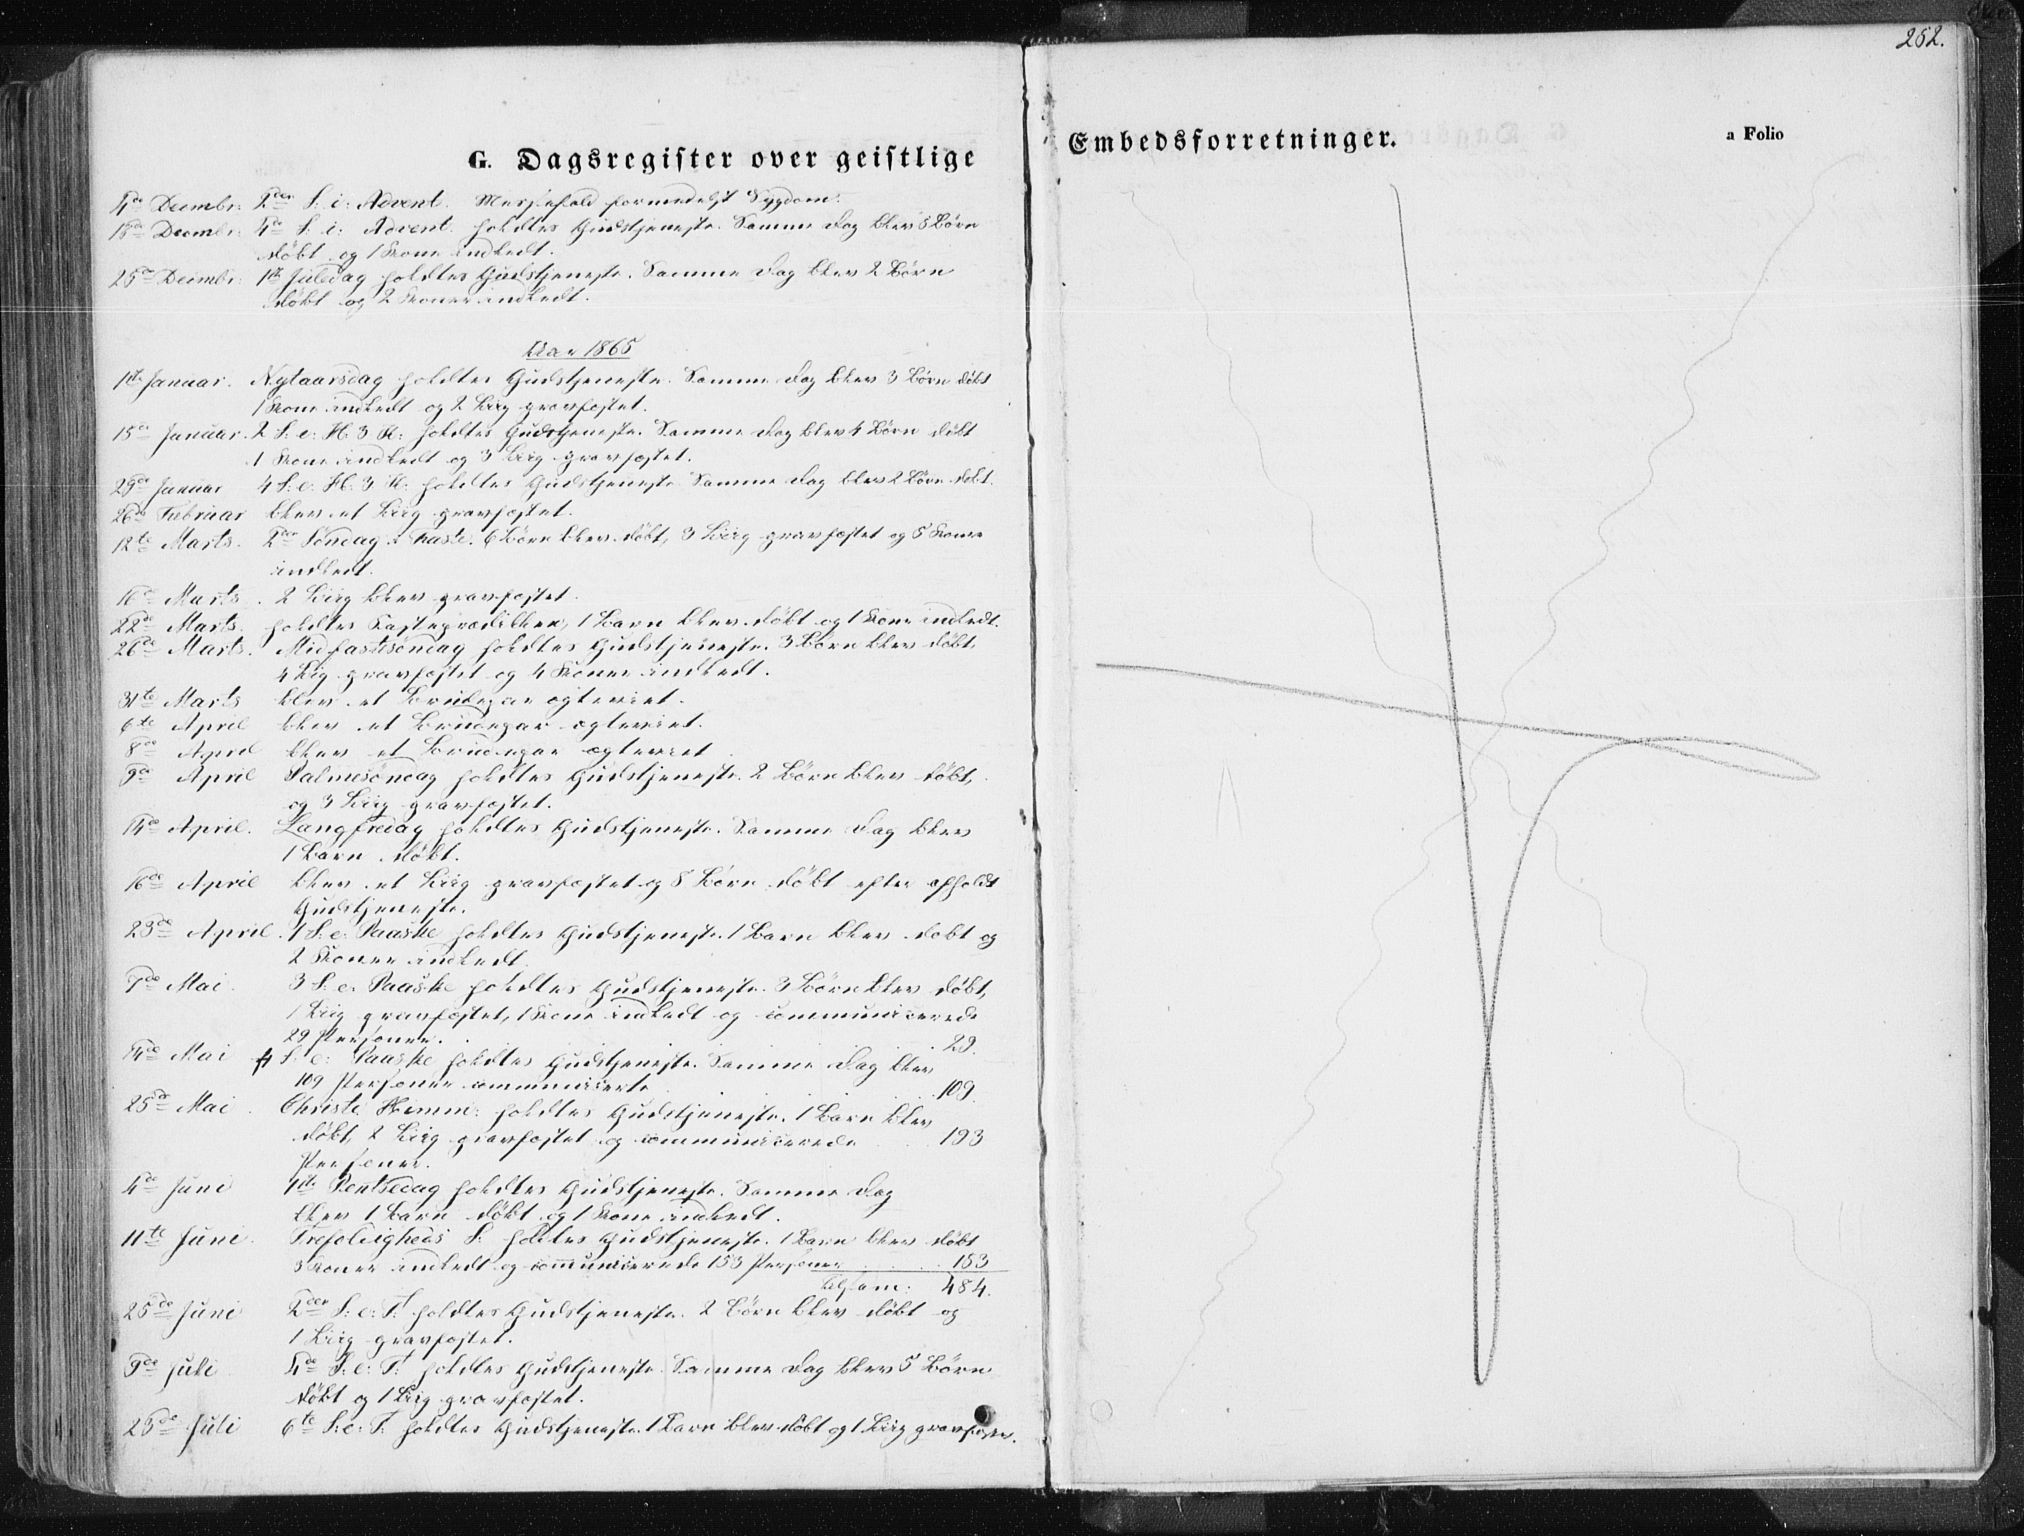 252.
G. Dagsregister over geistlige Embedsforretninger.
a Folio
4de Decmbr: 2den S: i: Advent. Messefald formedelst Sygdom.
18de Decmbr: 4de S: i: Advent. holdtes Gudstjeneste. Samme Dag blev 3 Børn
døbt og 1 Kone indledt.
25de Decmbr: 1ste Juledag holdtes Gudstjeneste. Samme Dag blev 2 Børn
døbt og 2 Koner indledt.
Aar 1865
1ste Januar. Nytaarsdag holdtes Gudstjeneste. Samme Dag blev 3 Børn døbt
1 Kone indledt og 2 Liig gravfæstet.
15de Januar. 2 S: e: H. 3 K: holdtes Gudstjeneste. Samme Dag blev 4 Børn døbt
1 Kone indledt og 3 Liig gravfæstet.
29de Januar 4 S: e: H: 3 K: holdtes Gudstjeneste Samme Dag blev 2 Børn døbt.
26de Februar blev et Liig gravfæstet.
12te Marts. 2den Søndag i Faste. 6 Børn blev døbt, 3 Liig gravfæstet og 5 Koner
indledt.
16de Marts. 2 Liig blev gravfæstet.
22de Marts. holdtes Fasteprædikken, 1 Barn blev døbt og 1 Kone indledt.
26de Marts. Midfastesøndag holdtes Gudstjeneste. 3 Børn blev døbt,
4 Lig gravfæstet og 4 Koner indledt.
31te Marts blev et Brudepar ægteviet.
6te April blev et Brudepar ægteviet.
8de April blev et Brudepar ægteviet
9de April Palmesøndag holdtes Gudstjeneste. 2 Børn blev døbt,
og 3 Liig gravfæstet.
14de April. Langfredag holdtes Gudstjeneste. Samme Dag blev
1 Barn døbt.
16de April blev et Liig gravfæstet og 8 Børn døbt efter afholdt
Gudstjeneste.
23de April. 1 S: e: Paaske holdtes Gudstjeneste. 1 Barn blev døbt og
2 Koner indledt.
7de Mai. 3 S: e: Paaske holdtes Gudstjeneste. 3 Børn blev døbt,
1 Liig gravfæstet, 1 Kone indledt og communicerede
29 Personer. 29.
14de Mai 4 S: e: Paaske holdtes Gudstjeneste. Samme Dag blev
109 Personer communicerte 109.
25de Mai. Christi Himm: holdtes Gudstjeneste. 1 Barn blev
døbt, 2 Liig gravfæstet og communicerede 193
Personer.
4de Juni 1ste Pentsedag holdtes Gudstjeneste. Samme Dag
blev 1 Barn døbt og 1 Kone indledt.
11te Juni. Trefoldigheds S: holdtes Gudstjeneste. 1 Barn blev døbt
3 Koner indledt og communicerede 153 Personer 153
Tilsam: 484.
25de Juni 2den S: e: T: holdtes Gudstjeneste. 2 Børn blev døbt og
1 Liig gravfæstet.
9de Juli 4de S: e: T: holdtes Gudstjeneste. Samme Dag blev 5 Børn
døbt og 1 Liig gravfæstet.
23de Juli 6te S: e: T: holdtes Gudstjeneste. 1 Barn blev døbt og 1 Liig gravfæstet.